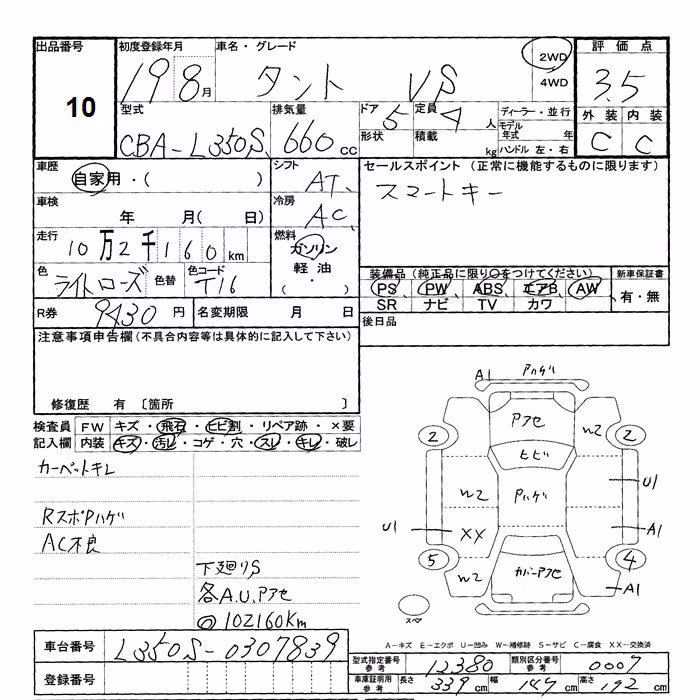 出品番号 10
初度登録年月 19 8月
車名・グレード タント VS
2WD
4WD
評価点 3.5
外装 内装
C C
型式 CBA-L350S
排気量 660 cc
ドア 5
定員 4人
形状
積載 kg
ディーラー・並行
モデル年式 年
ハンドル 左・右
車歴 自家用・( )
シフト AT
セールスポイント (正常に機能するものに限ります)
スマートキー
車検 年 月( 日)
冷房 AC
走行 10万2千160km
燃料 ガソリン
軽油
( ・ )
色 ライトローズ
色替
色コード T16
装備品 (純正品に限り○をつけてください)
PS PW ABS エアB AW
SR ナビ TV カワ
新車保証書
有・無
R券 9430円
名変期限 月 日
後日品
注意事項申告欄(不具合内容等は具体的に記入して下さい)
修復歴 有 〔箇所 〕
検査員記入欄
FW キズ・飛石・ヒビ割・リペア跡・×要
内装 キズ・汚レ・コゲ・穴・スレ・キレ・破レ
カーペットキレ
RスポPハゲ
AC不良
下廻りS
各A.U.Pアセ
◎102160km
A1 Pハゲ
Pアセ
2 W2 2
ヒビ
W2 Pハゲ U1
U1 XX A1
5 W2 カバーアセ 4
A1
スペア
A-キズ E-エクボ U-凹み W-補修跡 S-サビ C-腐食 XX-交換済
車台番号 L350S-0307839
登録番号
型式指定番号参考 12380
類別区分番号参考 0007
車庫証明用参考 長さ 339cm 幅 147cm 高さ 172cm